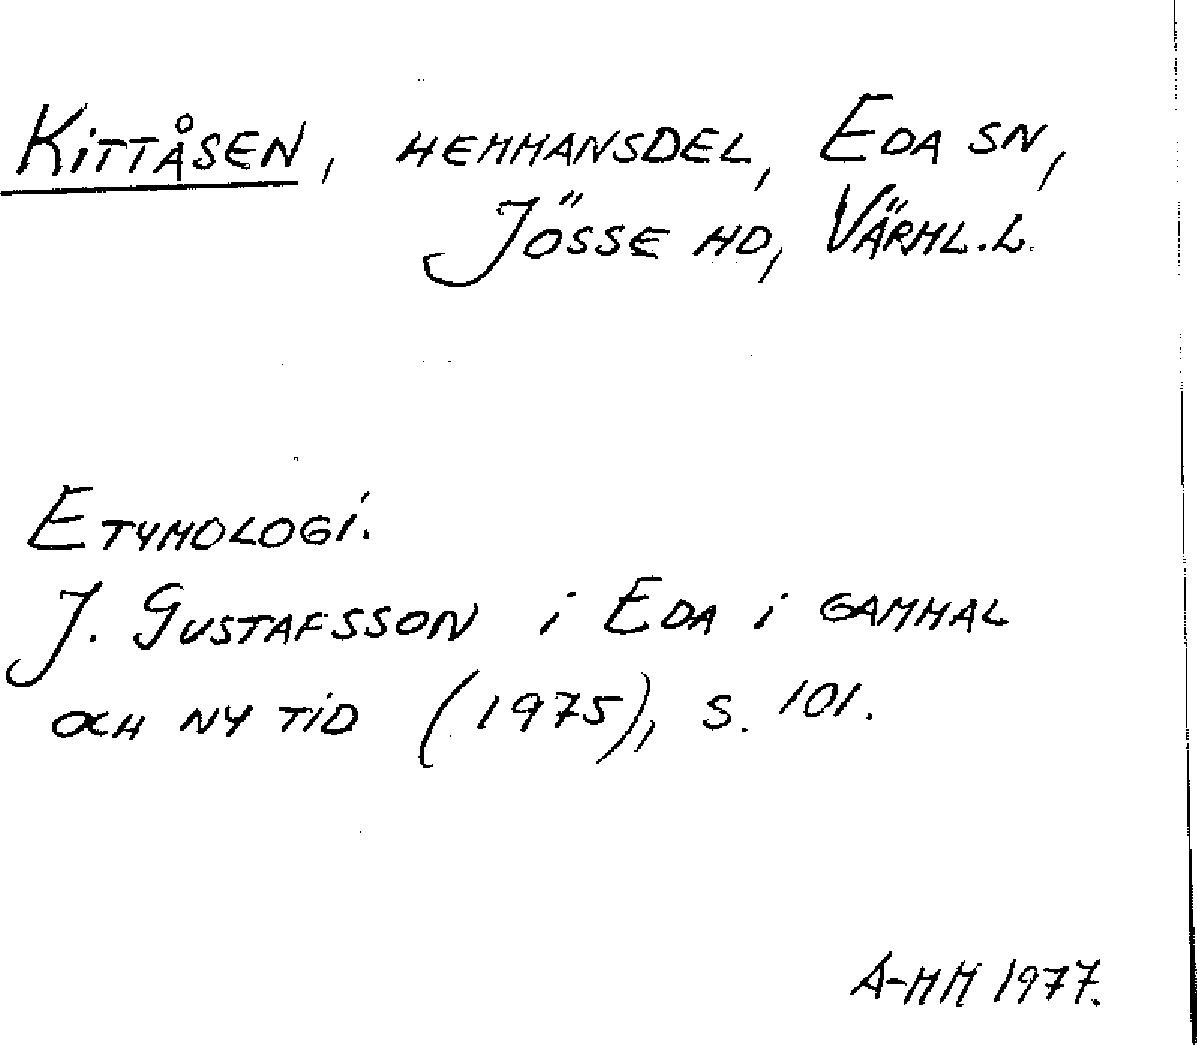 Kittåsen, hemmansdel, Eda sn,
Jösse hd, Värml.l.
Etymologi.
J. Gustafsson i Eda i gammal
och ny tid (1975), s. 101.
A-MM 1977.